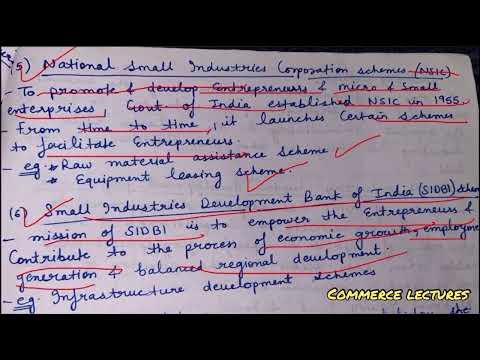 (5) National Small Industries Corporation schemes (NSIC)
- To promote & develop Entrepreneurs & micro & small
enterprises, Govt of India established NSIC in 1955
- From time to time, it launches Certain schemes
to facilitate Entrepreneurs.
- eg. * Raw material assistance scheme
* Equipment leasing scheme.
(6) Small Industries Development Bank of India (SIDBI)
- mission of SIDBI is to empower the Entrepreneurs &
Contribute to the process of economic growth, employme
generation & balanced regional development.
- eg. Infrastructure development schemes
COMMERCE LECTURES